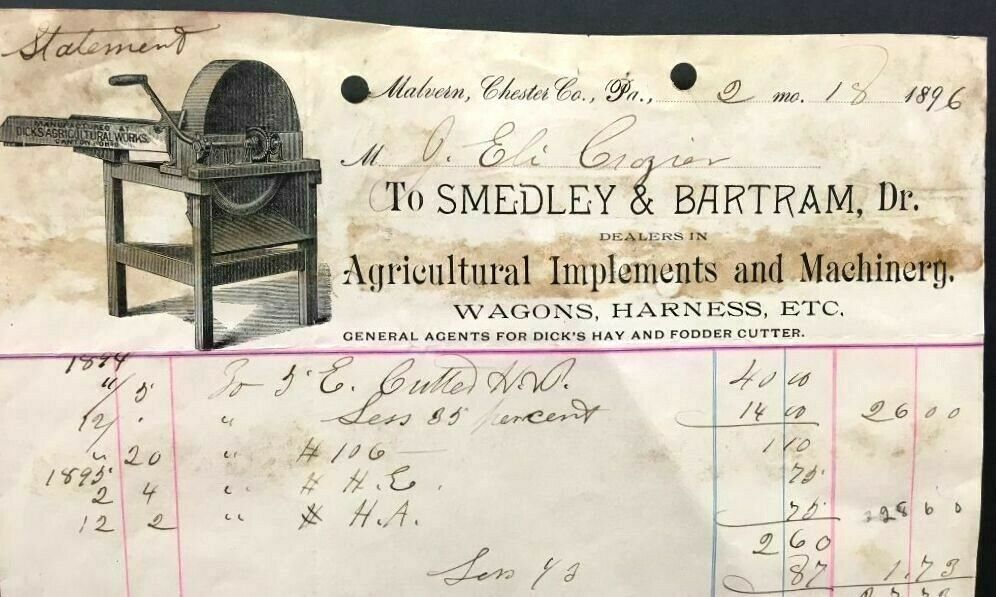 Statement
MANUFACTURED AT
DICKS AGRICULTURAL WORKS.
CANTON, OHIO
Malvern, Chester Co., Pa., 2 mo. 18 1896
M J. Eli Crozier
To SMEDLEY & BARTRAM, Dr.
DEALERS IN
Agricultural Implements and Machinery.
WAGONS, HARNESS, ETC.
GENERAL AGENTS FOR DICK'S HAY AND FODDER CUTTER.
1894
11/5 To 5 E. Cutter 40 00
12/ " " Less 35 percent 14 00 26 00
" 20 " # 106 — 1 10
1895
2 4 " # H.E. 75
12 2 " # H.A. 75 2860
2 60
Less 1/3 87 1.73